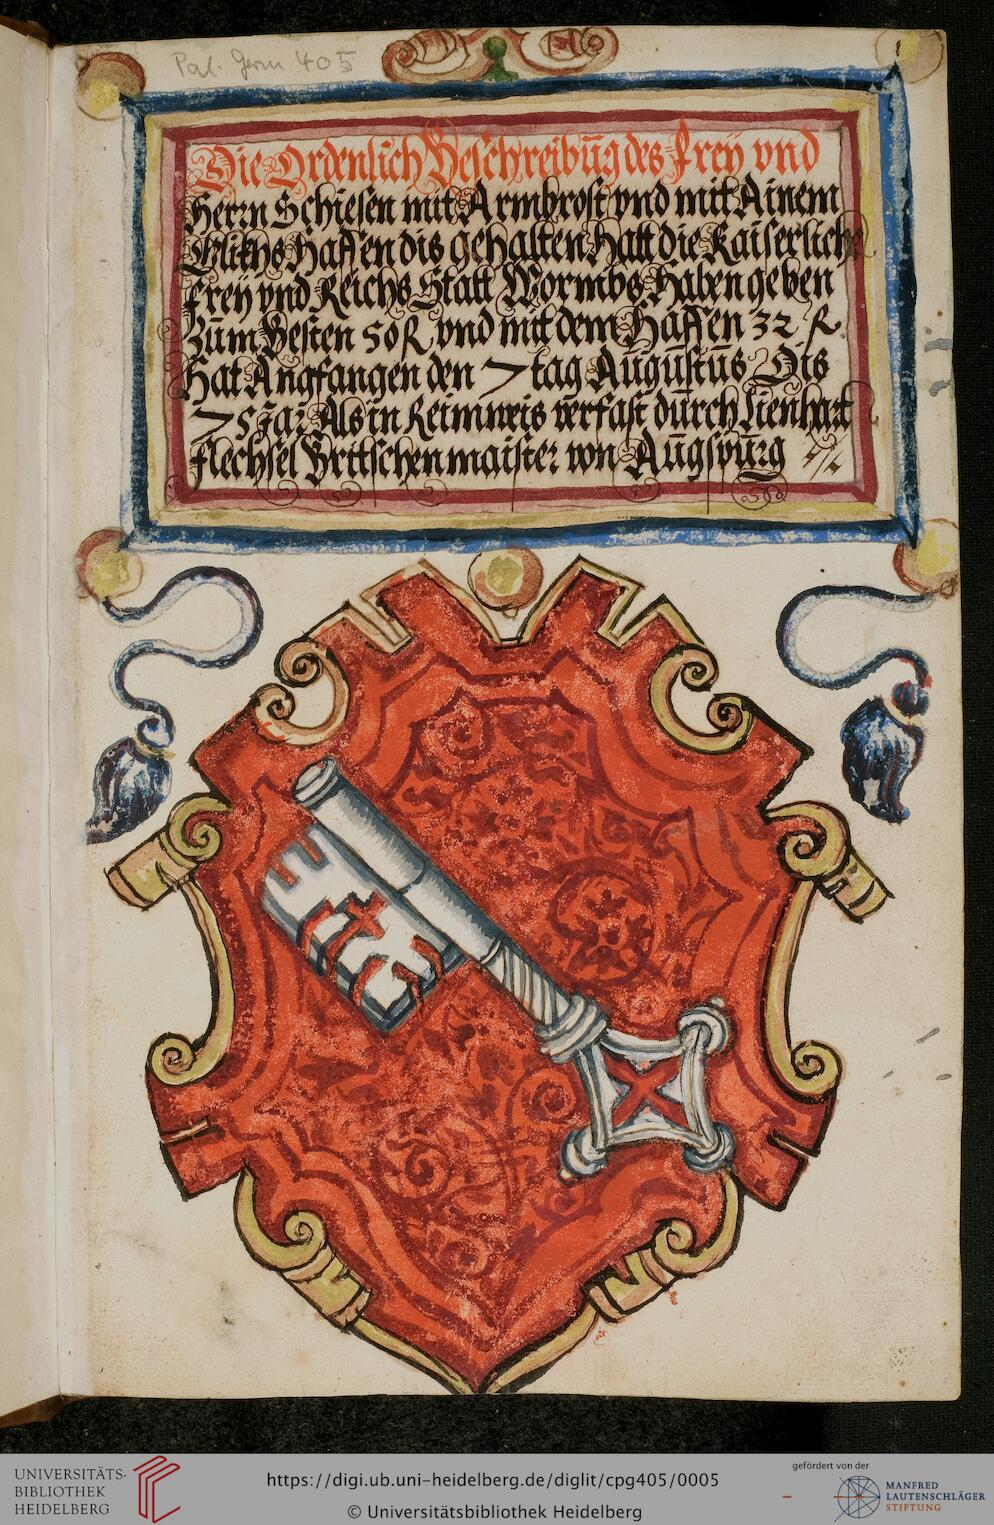 Pal. Germ. 405
Die Ordenlich Beschreibūg des Freÿ vnd
Herrn Schiesen mit Armbrost vnd mit Ainem
Haffen dis gehalten Hatt die Kaiserliche
Freÿ vnd Reichs Statt Wormbs Haben geben
Zūm Besten 50 fl vnd mit dem Haffen 32 fl.
Hat Angfangen den 7 tag Aūgūstūs Dis
75 Jar Als in Reimweis verfast dūrch Lienhart
flechsel Brittschenmaister von Aūgspūrg
UNIVERSITÄTS-
BIBLIOTHEK
HEIDELBERG
https://digi.ub.uni-heidelberg.de/diglit/cpg405/0005
© Universitätsbibliothek Heidelberg
gefördert von der
MANFRED
LAUTENSCHLÄGER
STIFTUNG